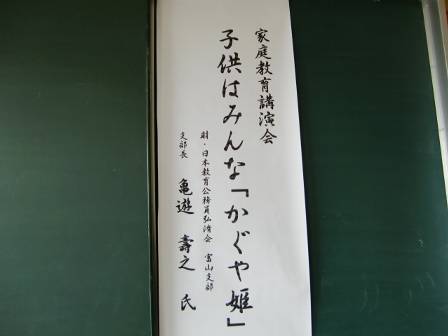 家庭教育講演会
子供はみんな「かぐや姫」
財・日本教育公務員弘済会 富山支部
支部長 亀遊 壽之 氏